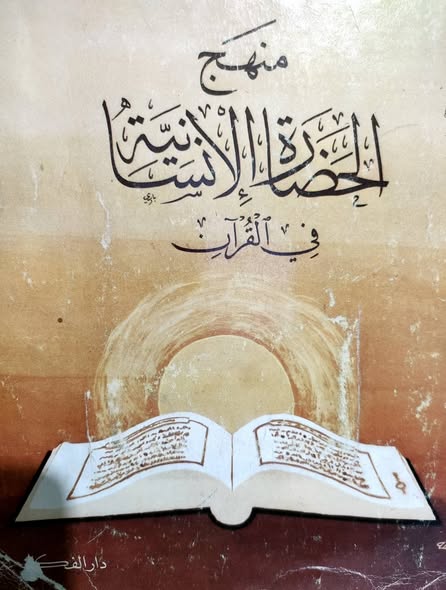 منهَج
الحَضَارَة الإِنسَانيَّة
في القُرآنِ
دار الفكر